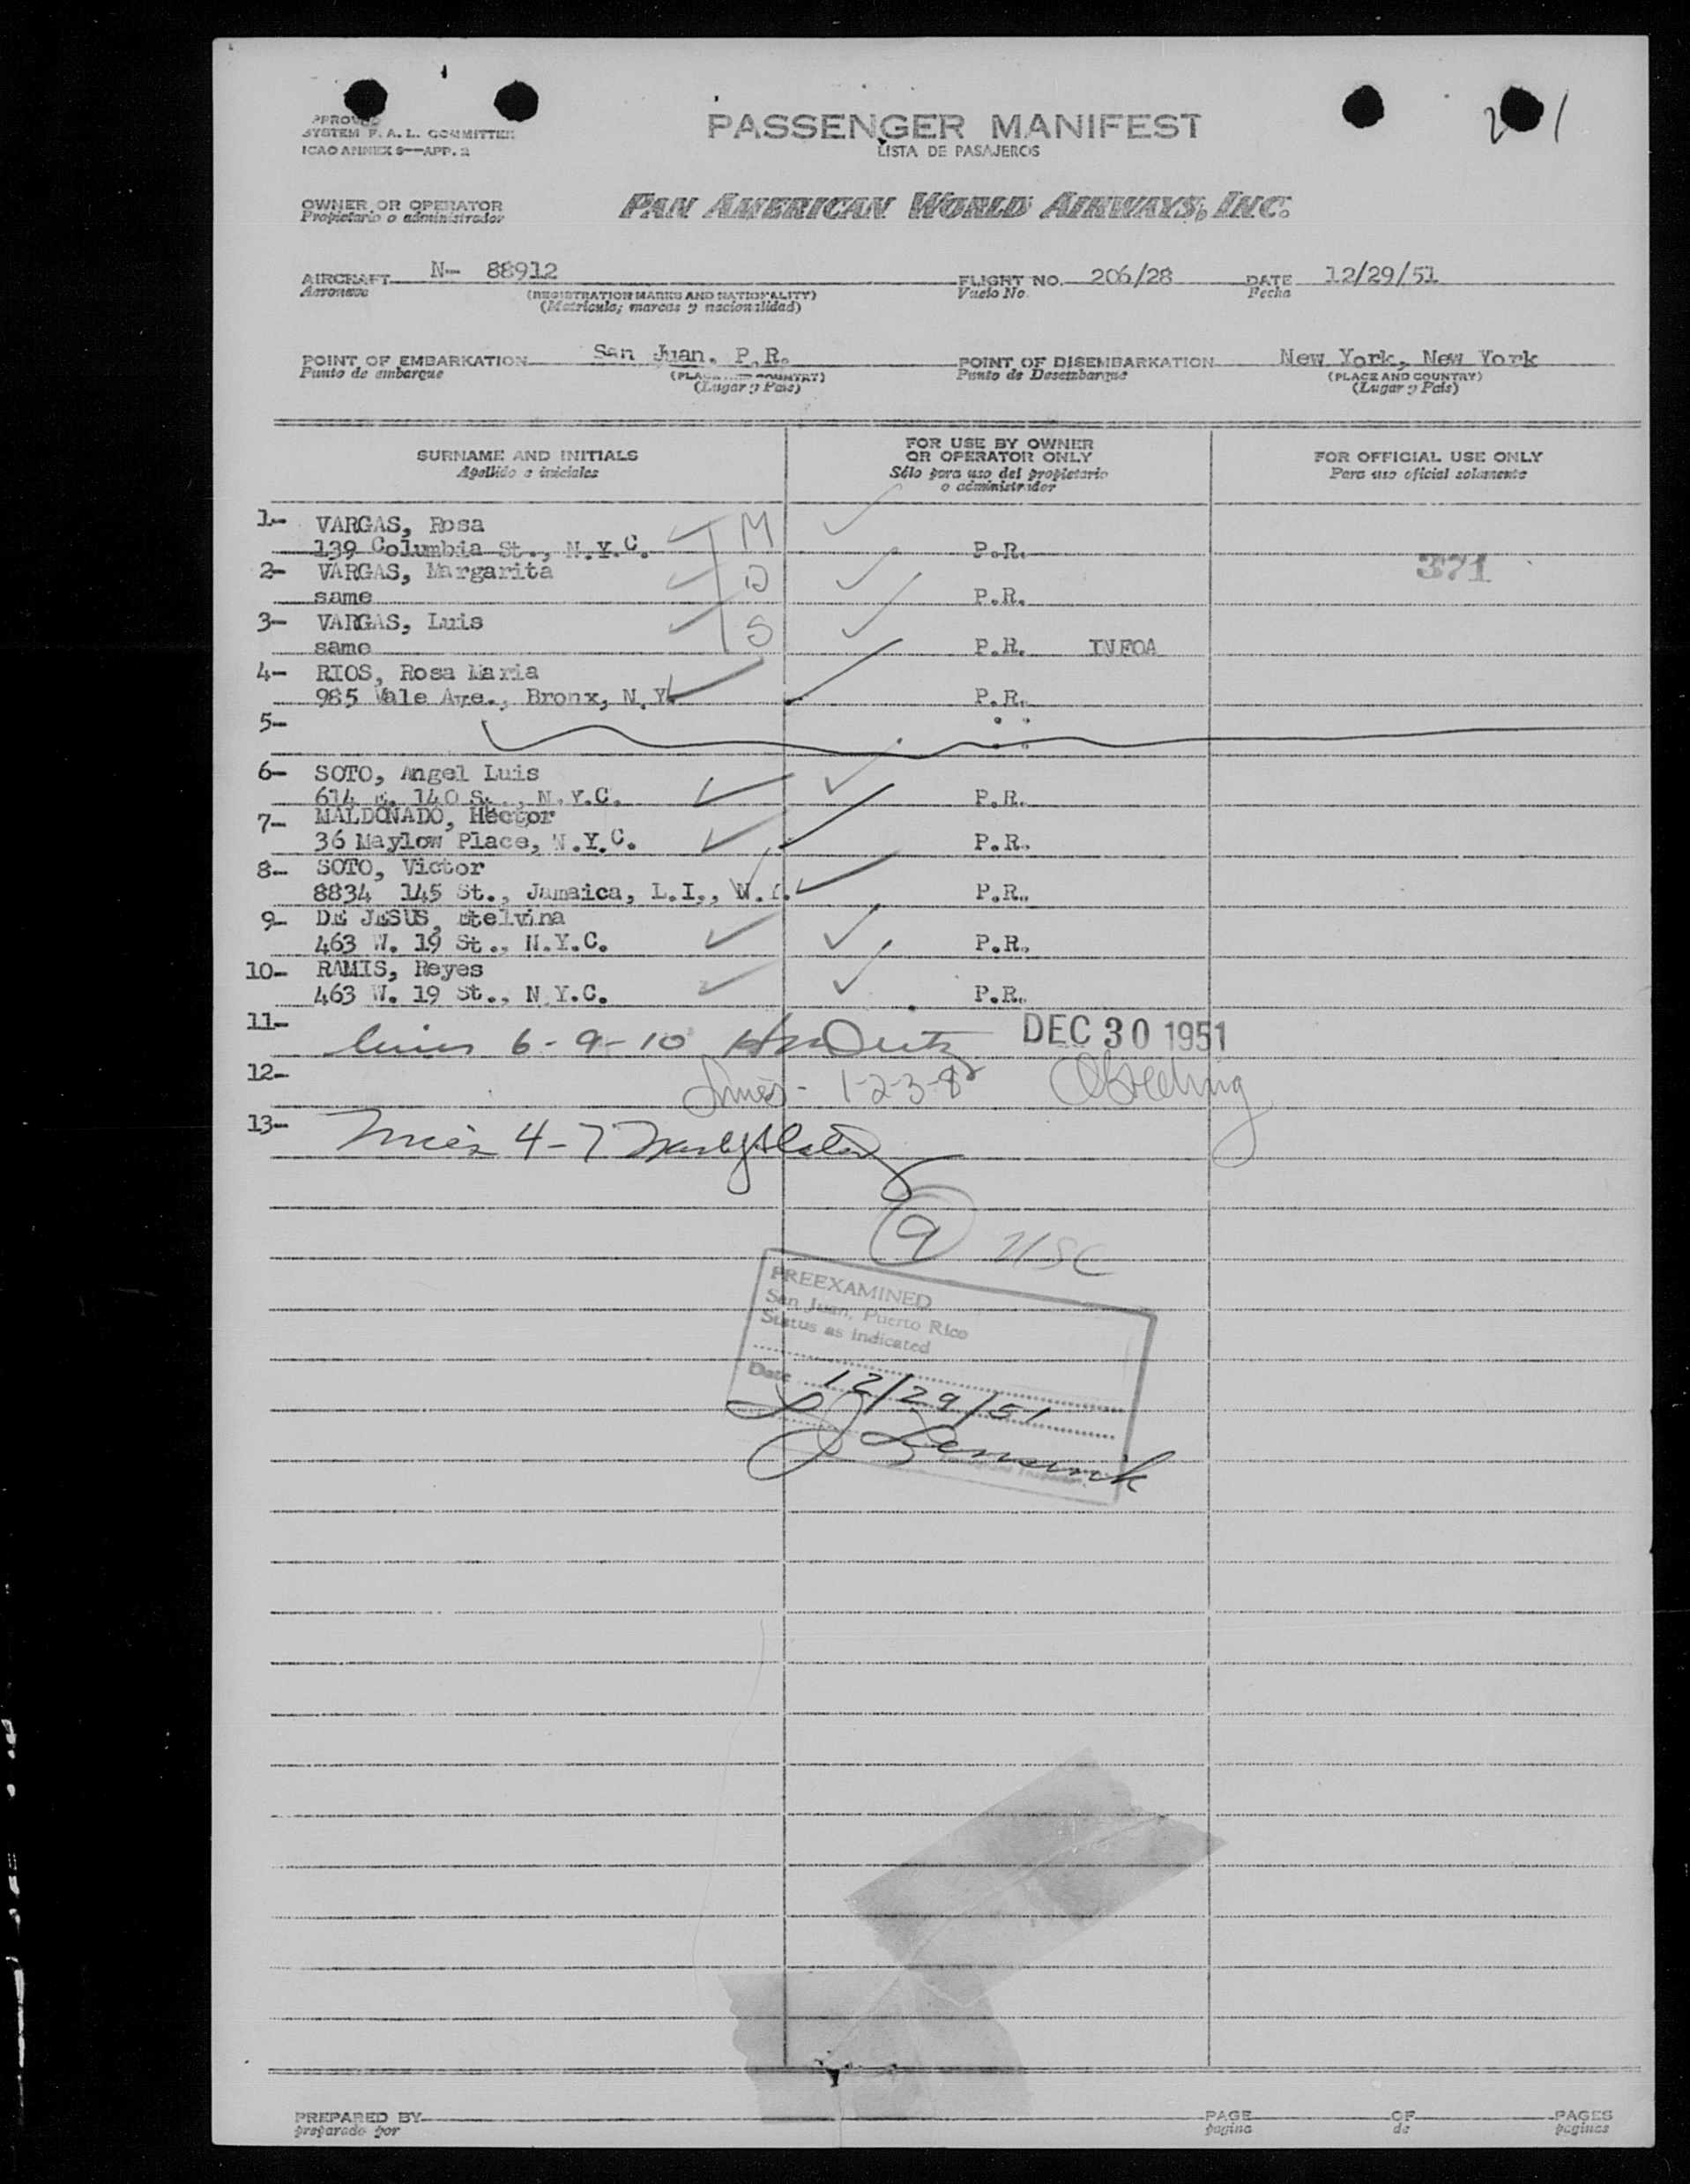 APPROVED
SYSTEM F. A. L. COMMITTEE
ICAO ANNEX 9—APP. 2
PASSENGER MANIFEST
LISTA DE PASAJEROS
2 1
OWNER OR OPERATOR
Propietario o administrador
PAN AMERICAN WORLD AIRWAYS, INC.
AIRCRAFT N- 88912 FLIGHT NO. 206/28 DATE 12/29/51
Aeronave (REGISTRATION MARKS AND NATIONALITY) Vuelo No. Fecha
(Matricula; marcas y nacionalidad)
POINT OF EMBARKATION San Juan. P.R. POINT OF DISEMBARKATION New York, New York
Punto de embarque (PLACE AND COUNTRY) Punto de Desembarque (PLACE AND COUNTRY)
(Lugar y Pais) (Lugar y Pais)
SURNAME AND INITIALS FOR USE BY OWNER OR OPERATOR ONLY FOR OFFICIAL USE ONLY
Apellido e iniciales Sólo para uso del propietario o administrador Para uso oficial solamente
1- VARGAS, Rosa M
139 Columbia St., N.Y.C. P.R.
2- VARGAS, Margarita D 371
same P.R.
3- VARGAS, Luis S
same P.R. INFOA
4- RIOS, Rosa Maria
985 Wale Ave., Bronx, N.Y. P.R.
5-
6- SOTO, Angel Luis
614 E. 140 S., N.Y.C. P.R.
7- MALDONADO, Hector
36 Maylow Place, N.Y.C. P.R.
8- SOTO, Victor
8834 145 St., Jamaica, L.I., N.Y. P.R.
9- DE JESUS, Etelvina
463 W. 19 St., N.Y.C. P.R.
10- RAMIS, Reyes
463 W. 19 St., N.Y.C. P.R.
11- Lines 6-9-10 DEC 30 1951
12- Lines - 1-2-3-8
13- Lines 4-7
9 USC
PREEXAMINED
San Juan, Puerto Rico
Status as indicated
Date 12/29/51
PREPARED BY PAGE OF PAGES
preparado por pagina de paginas